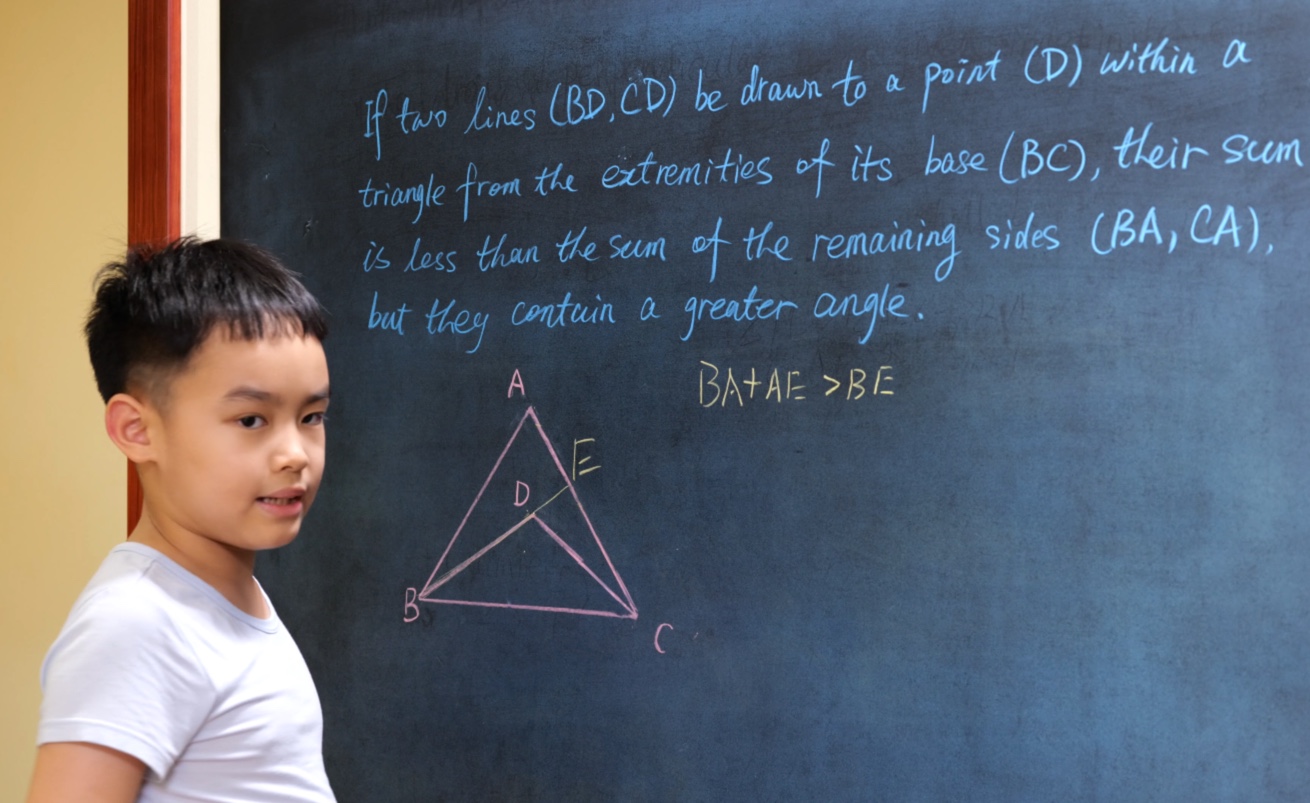 If two lines (BD, CD) be drawn to a point (D) within a
triangle from the extremities of its base (BC), their sum
is less than the sum of the remaining sides (BA, CA),
but they contain a greater angle.
BA+AE >BE
A
E
D
B
C